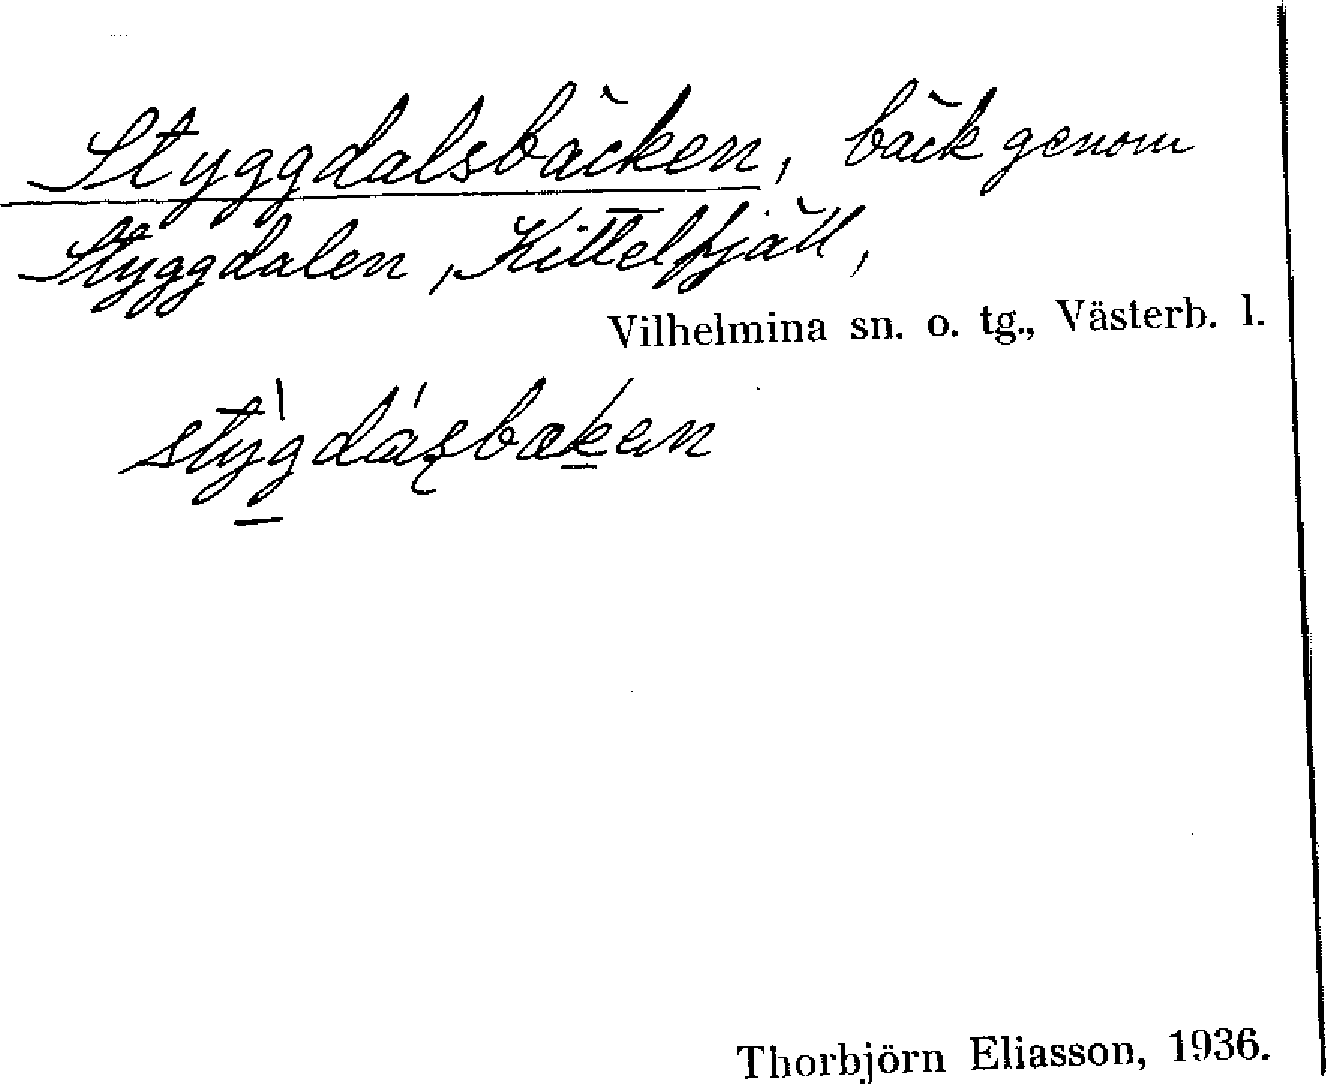 Styggdalsbäcken, bäck genom
Styggdalen, Kittelfjäll,
Vilhelmina sn. o. tg., Västerb. l.
Thorbjörn Eliasson, 1936.